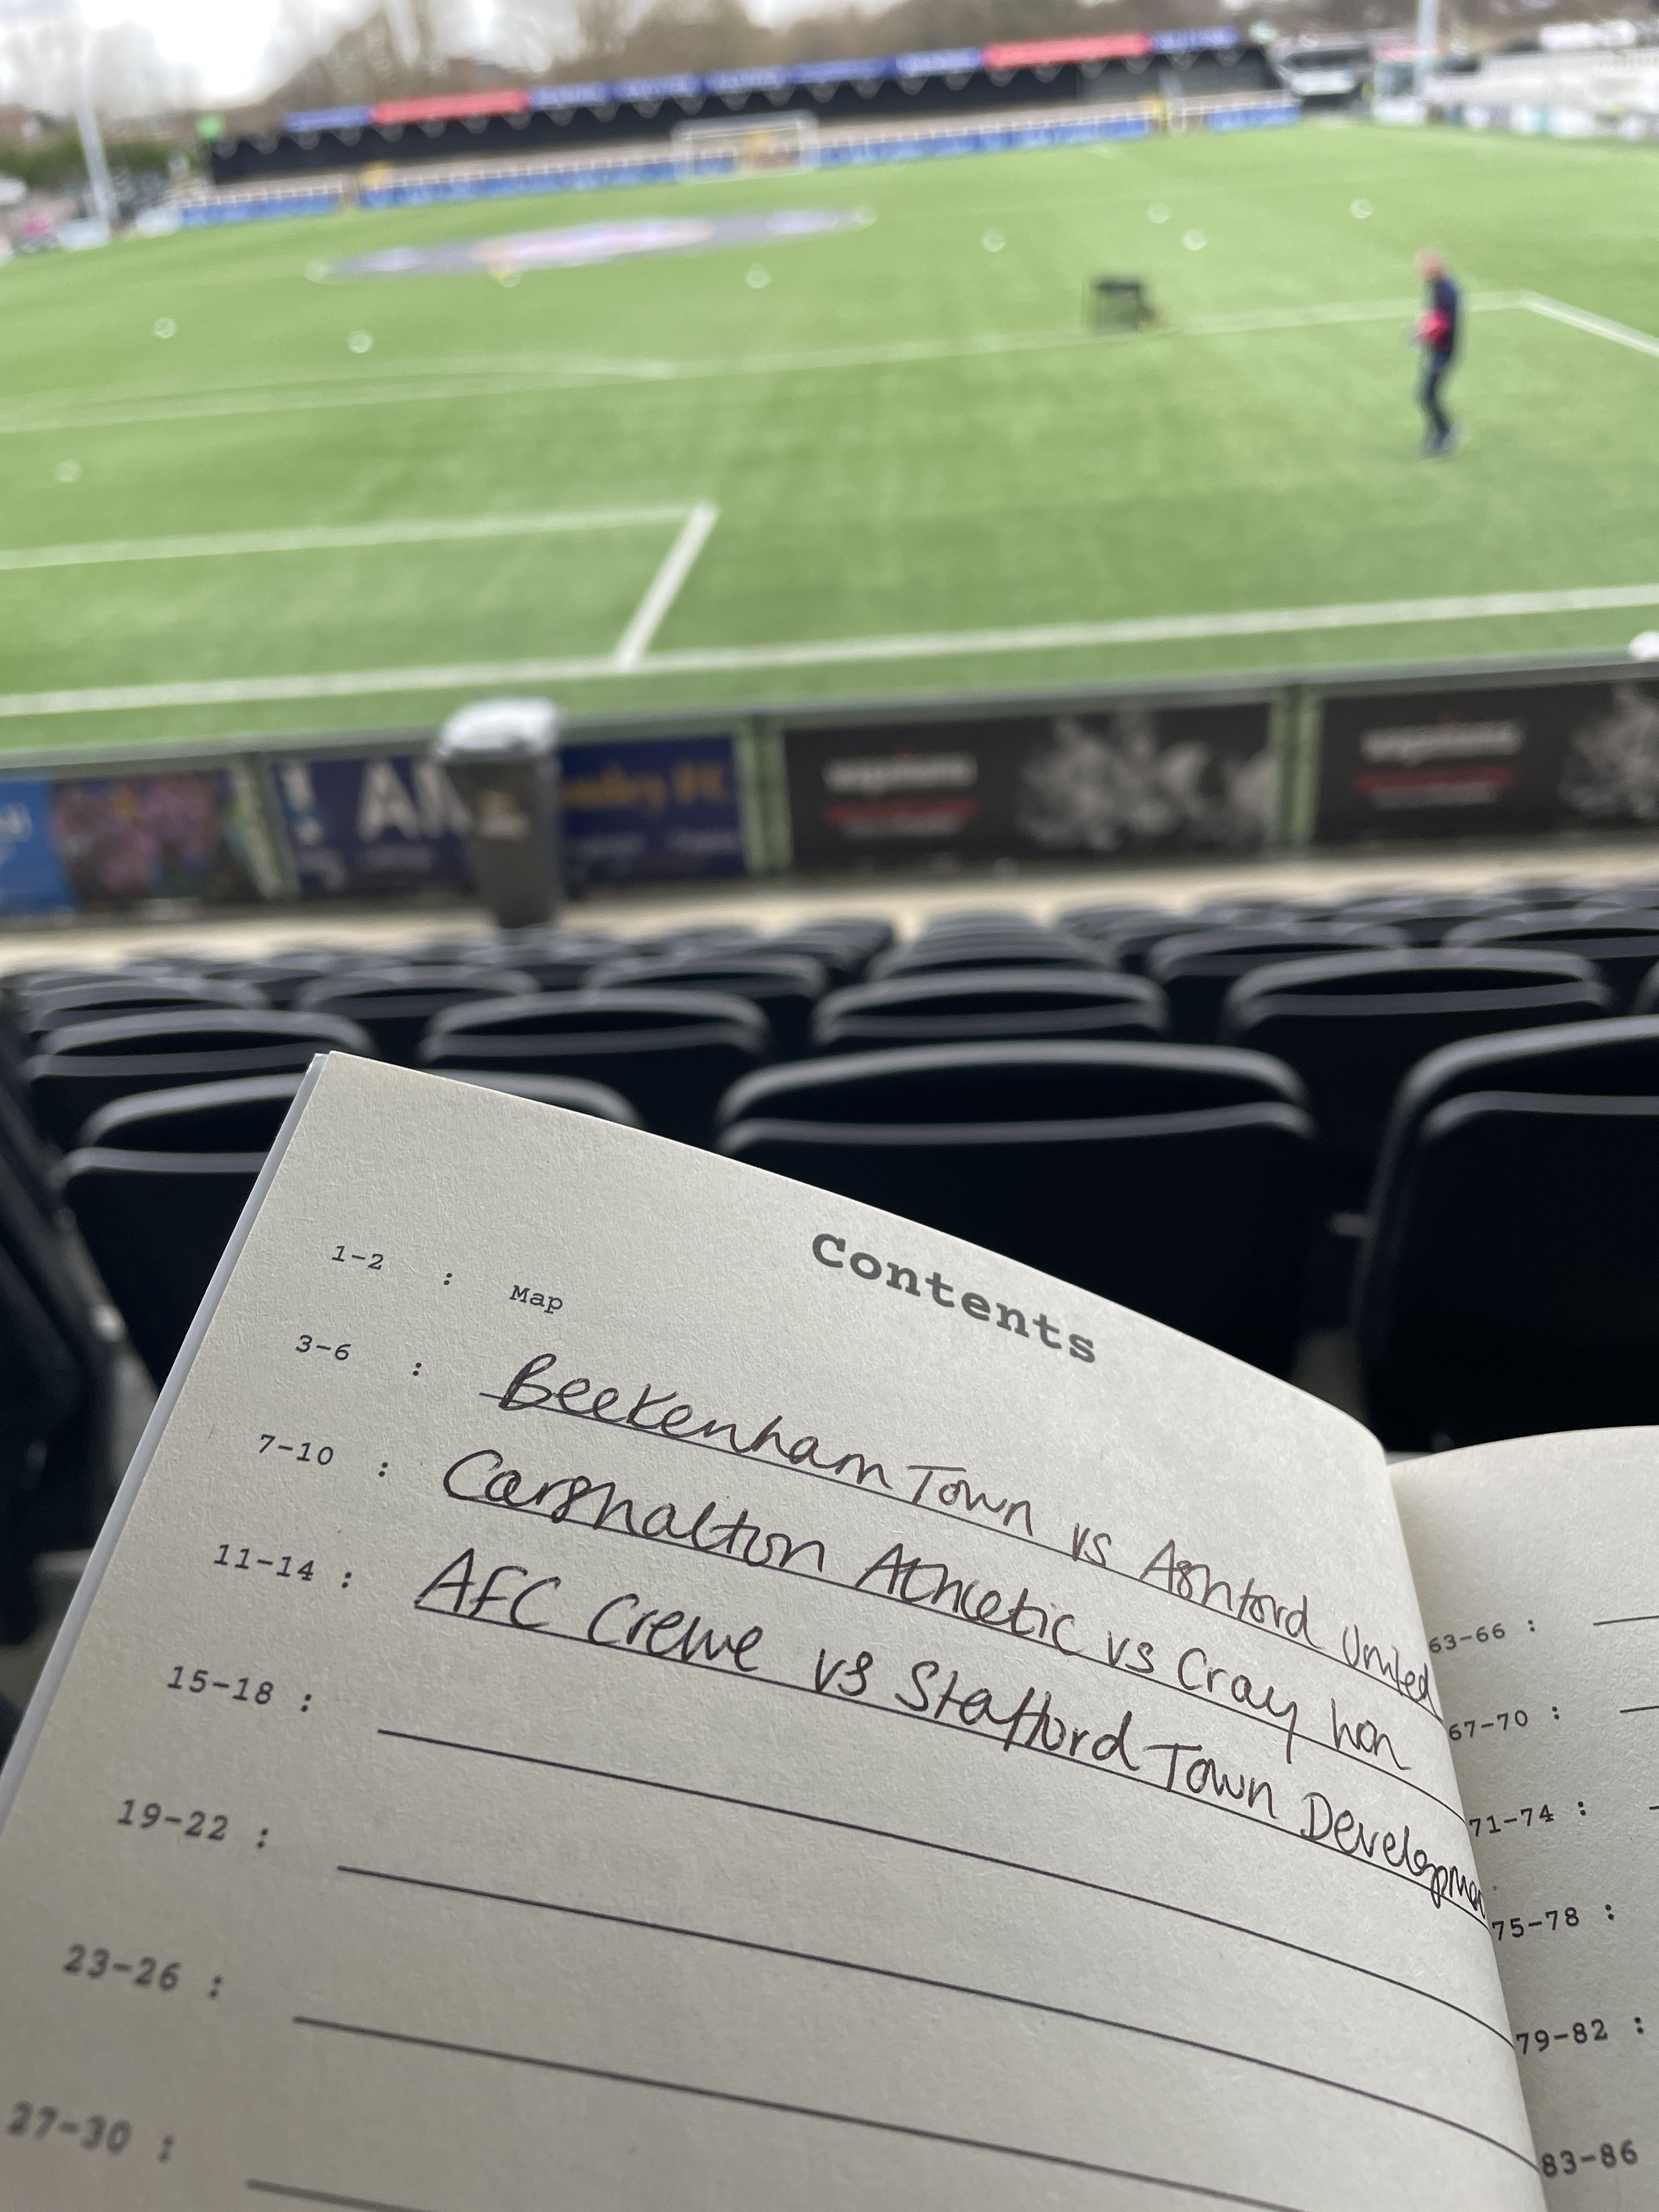 AM
Contents
1-2 : Map
3-6 : Beckenham Town vs Ashford United
7-10 : Carshalton Athletic vs Cray
11-14 : AFC Crewe vs Stafford Town Developmen
15-18 :
19-22 :
23-26 :
27-30 :
63-66 :
67-70 :
71-74 :
75-78 :
79-82 :
83-86